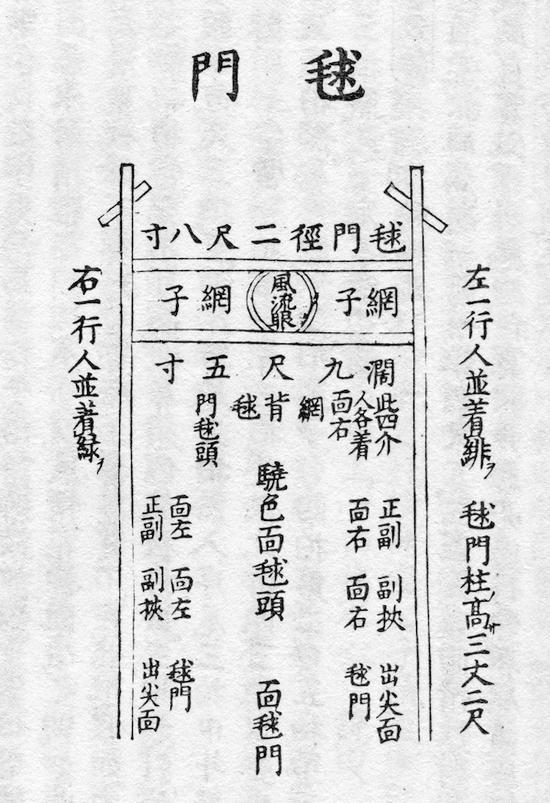 毬門
毬門徑二尺八寸
網子
風流眼
網子
濶九尺五寸
左一行人並着緋ヲ
毬門柱ノ高サ三丈二尺
右一行人並着緑ヲ
此四介
人各着
面右
網
背
毬
門毬頭
正副
面右
副挾
面右
出尖面
毬門
驍色面毬頭
面毬門
面左
正副
面左
副挾
毬門
出尖面